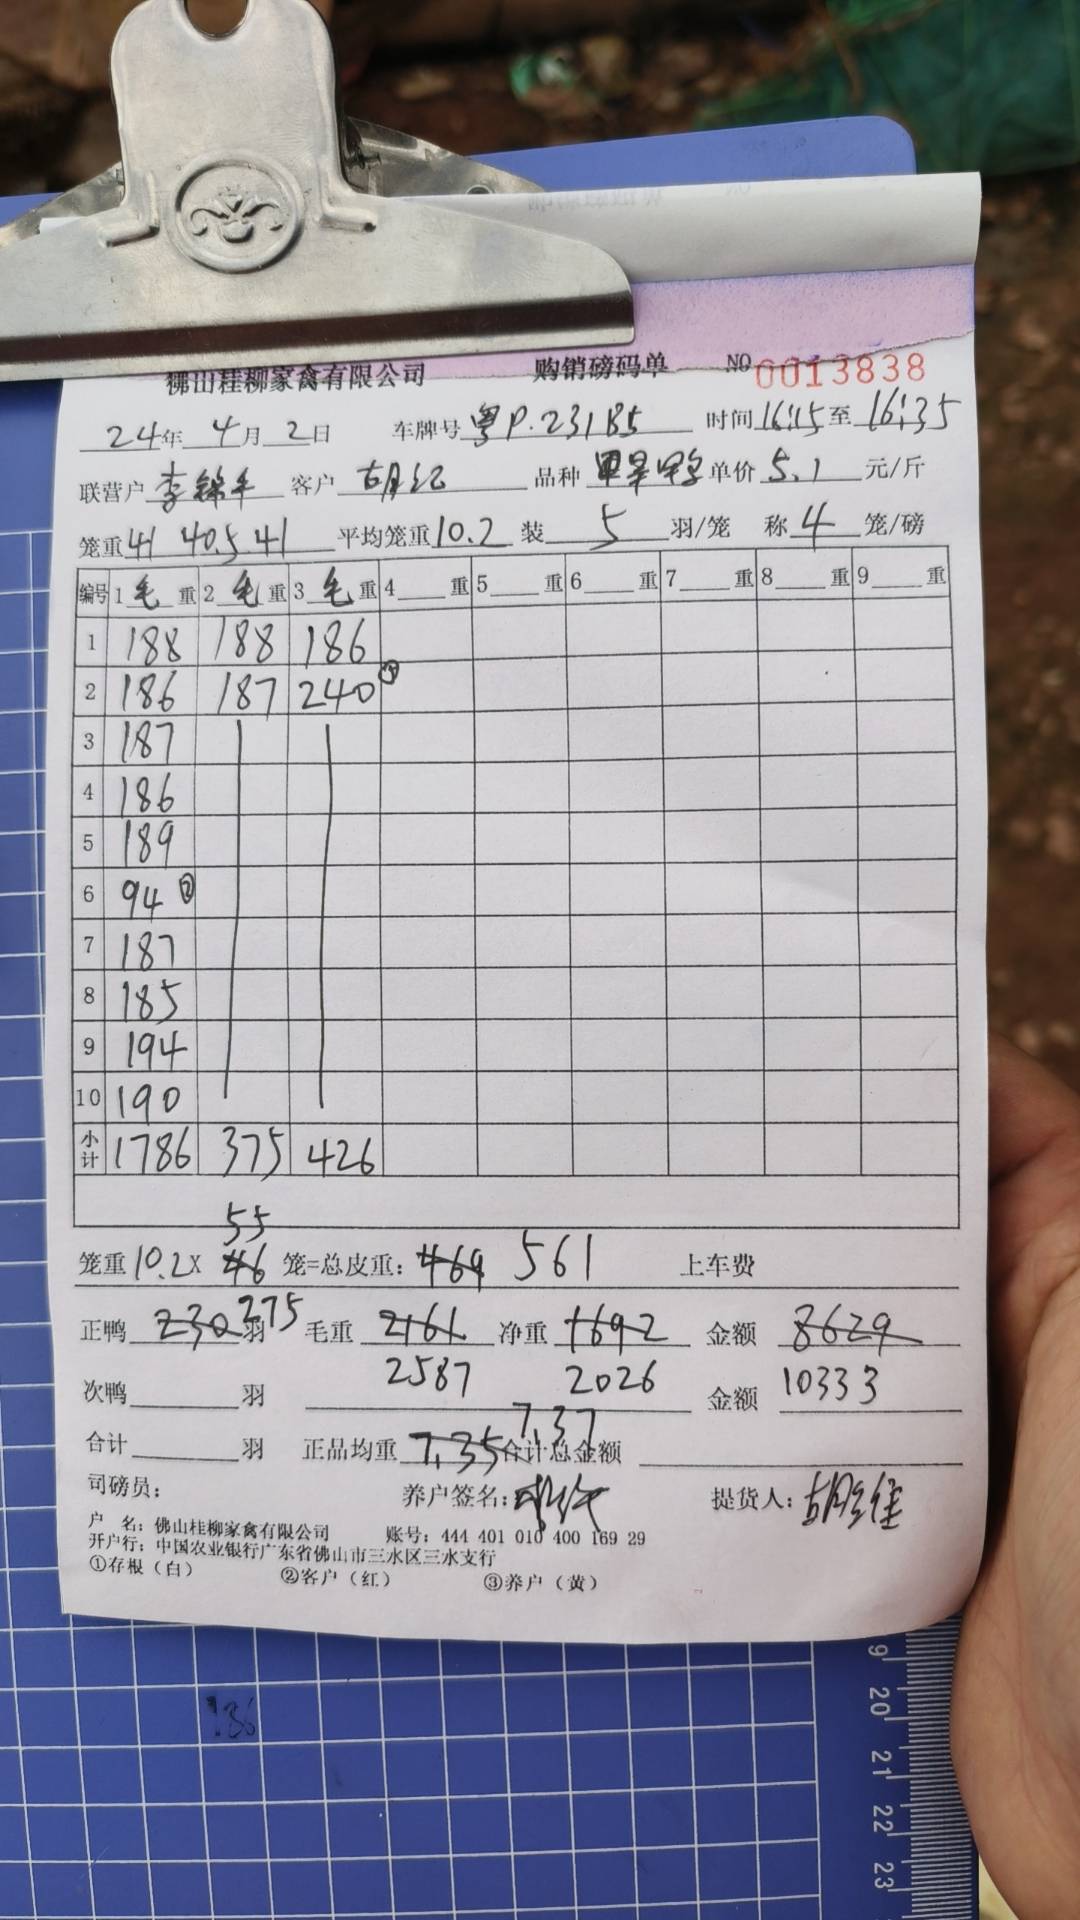 佛山桂柳家禽有限公司 购销磅码单 NO 0013838
24年 4月 2日 车牌号 粤P.23185 时间 16:15 至 16:35
联营户 李锦 客户 胡 品种 单价 5.1 元/斤
笼重 41 40.5 41 平均笼重 10.2 装 5 羽/笼 称 4 笼/磅
编号 1 毛 重 2 毛 重 3 毛 重 4 重 5 重 6 重 7 重 8 重 9 重
1 188 188 186
2 186 187 240 ⑤
3 187
4 186
5 189
6 94 ②
7 187
8 185
9 194
10 190
小计 1786 375 426
55
笼重 10.2X 46 笼=总皮重: 469 561 上车费
正鸭 230 275 羽 毛重 2161 净重 1692 金额 8629
2587 2026 10333
次鸭 羽 金额
7.37
合计 羽 正品均重 7.35 合计总金额
司磅员: 养户签名: 提货人: 胡
户 名: 佛山桂柳家禽有限公司 账号: 444 401 010 400 169 29
开户行: 中国农业银行广东省佛山市三水区三水支行
①存根(白) ②客户(红) ③养户(黄)
186
19
20
21
22
23